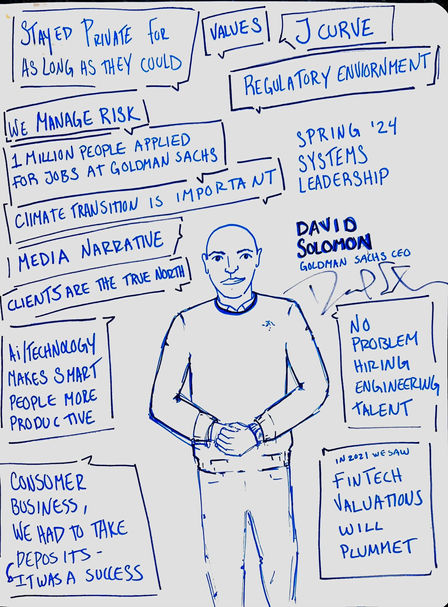 STAYED PRIVATE FOR
AS LONG AS THEY COULD
VALUES
J CURVE
REGULATORY ENVIORNMENT
WE MANAGE RISK
1 MILLION PEOPLE APPLIED
FOR JOBS AT GOLDMAN SACHS
CLIMATE TRANSITION IS IMPORTANT
MEDIA NARRATIVE
CLIENTS ARE THE TRUE NORTH
SPRING '24
SYSTEMS
LEADERSHIP
DAVID
SOLOMON
GOLDMAN SACHS CEO
Ai/TECHNOLOGY
MAKES SMART
PEOPLE MORE
PRODUCTIVE
NO
PROBLEM
HIRING
ENGINEERING
TALENT
CONSUMER
BUSINESS,
WE HAD TO TAKE
DEPOSITS-
IT WAS A SUCCESS
IN 2021 WE SAW
FINTECH
VALUATIONS
WILL
PLUMMET